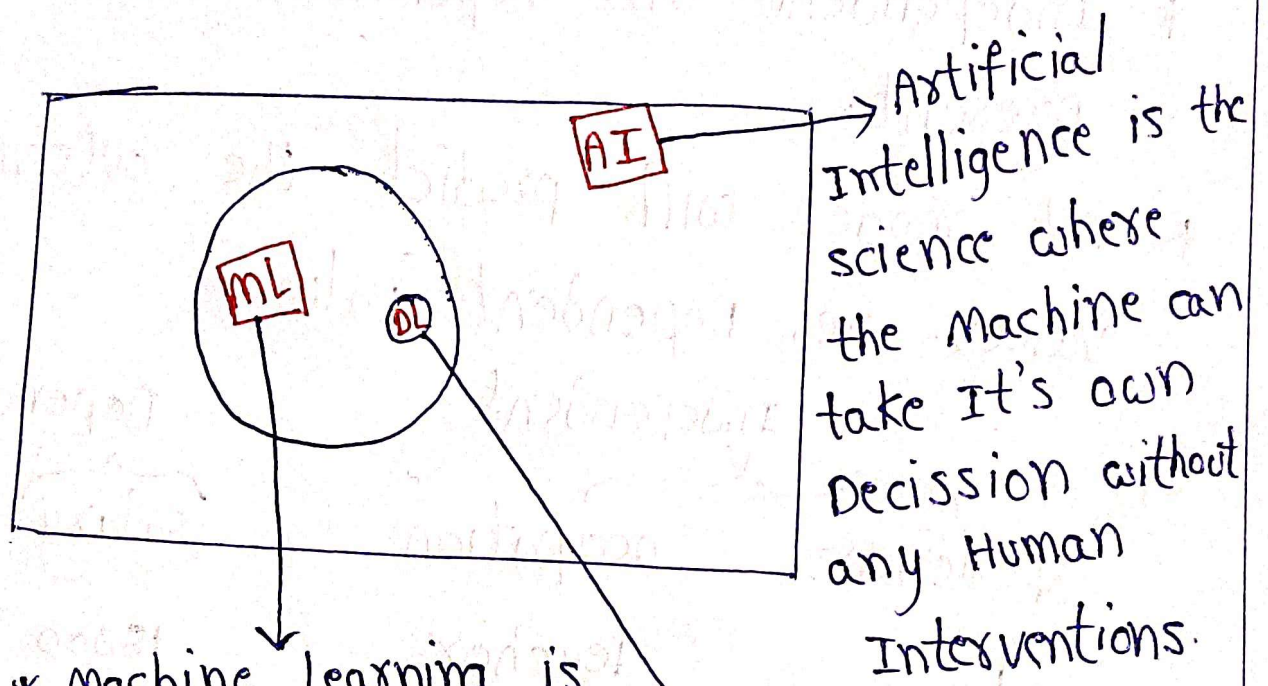 AI
Artificial
Intelligence is the
science where
the Machine can
take It's own
Decission without
any Human
Interventions.
ML
DL
* Machine learning is